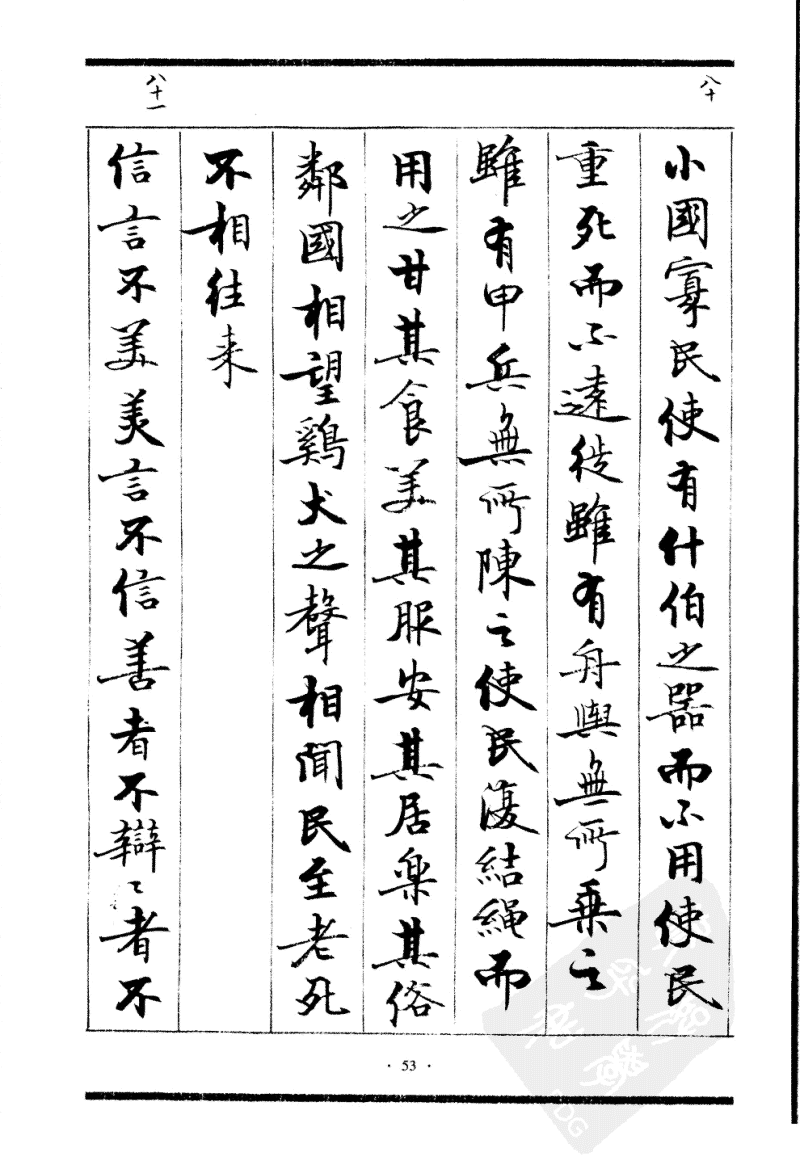 八十
小國寡民使有什伯之器而不用使民
重死而不遠徙雖有舟輿無所乘之
雖有甲兵無所陳之使民復結繩而
用之甘其食美其服安其居樂其俗
鄰國相望鷄犬之聲相聞民至老死
不相往来
八十一
信言不美美言不信善者不辯〻者不
· 53 ·